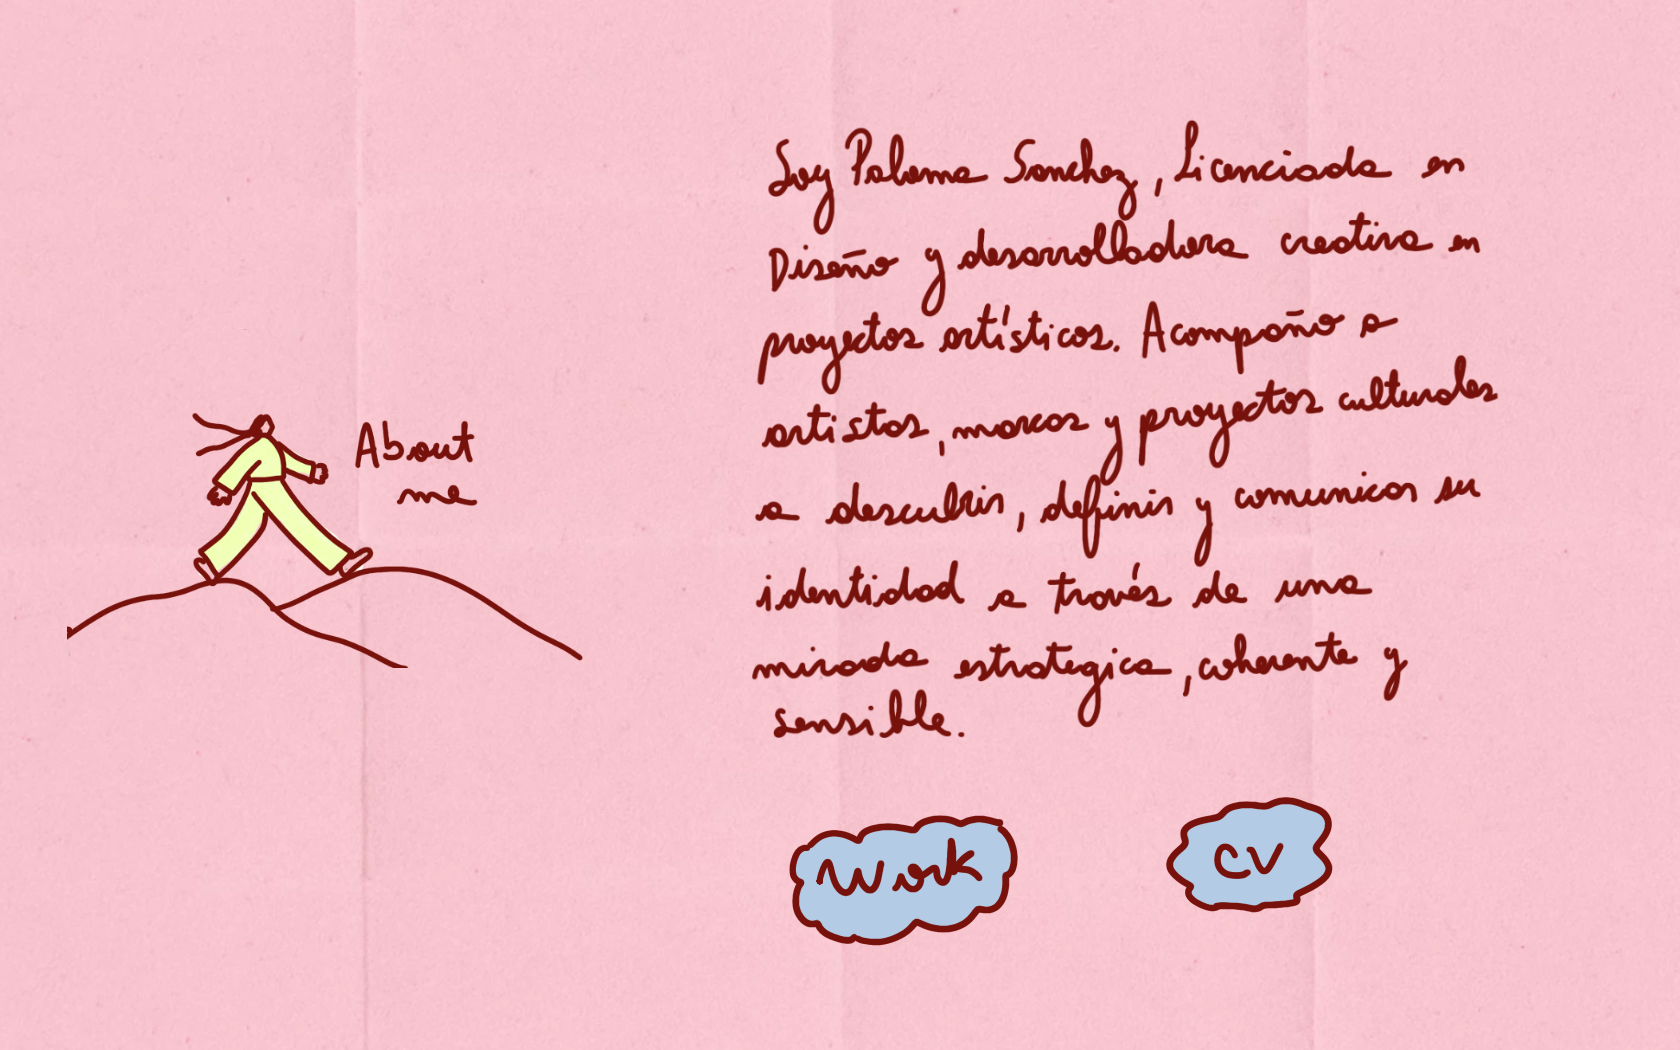 About
me
Soy Paloma Sanchez, Licenciada en
Diseño y desarrolladora creativa en
proyectos artísticos. Acompaño a
artistas, marcas y proyectos culturales
a descubrir, definir y comunicar su
identidad a través de una
mirada estrategica, coherente y
sensible.
Work
CV